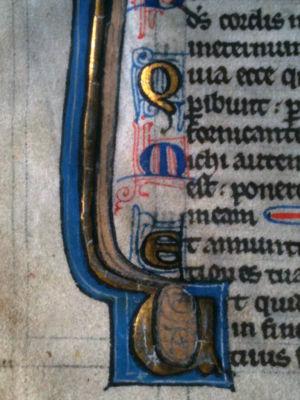 ds cordis m
ineternum
Quia ecce q
peribunt : p
fornicant
Michi autem
est : poner
meam
Et annunti
tiones tu
Ut qu
in fin
tuus